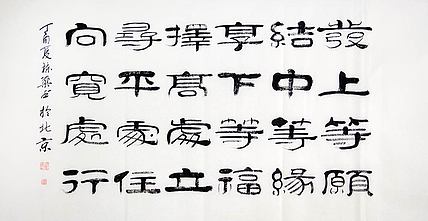 發上等願
結中等緣
享下等福
擇高處立
尋平處住
向寬處行
丁酉夏
於北京